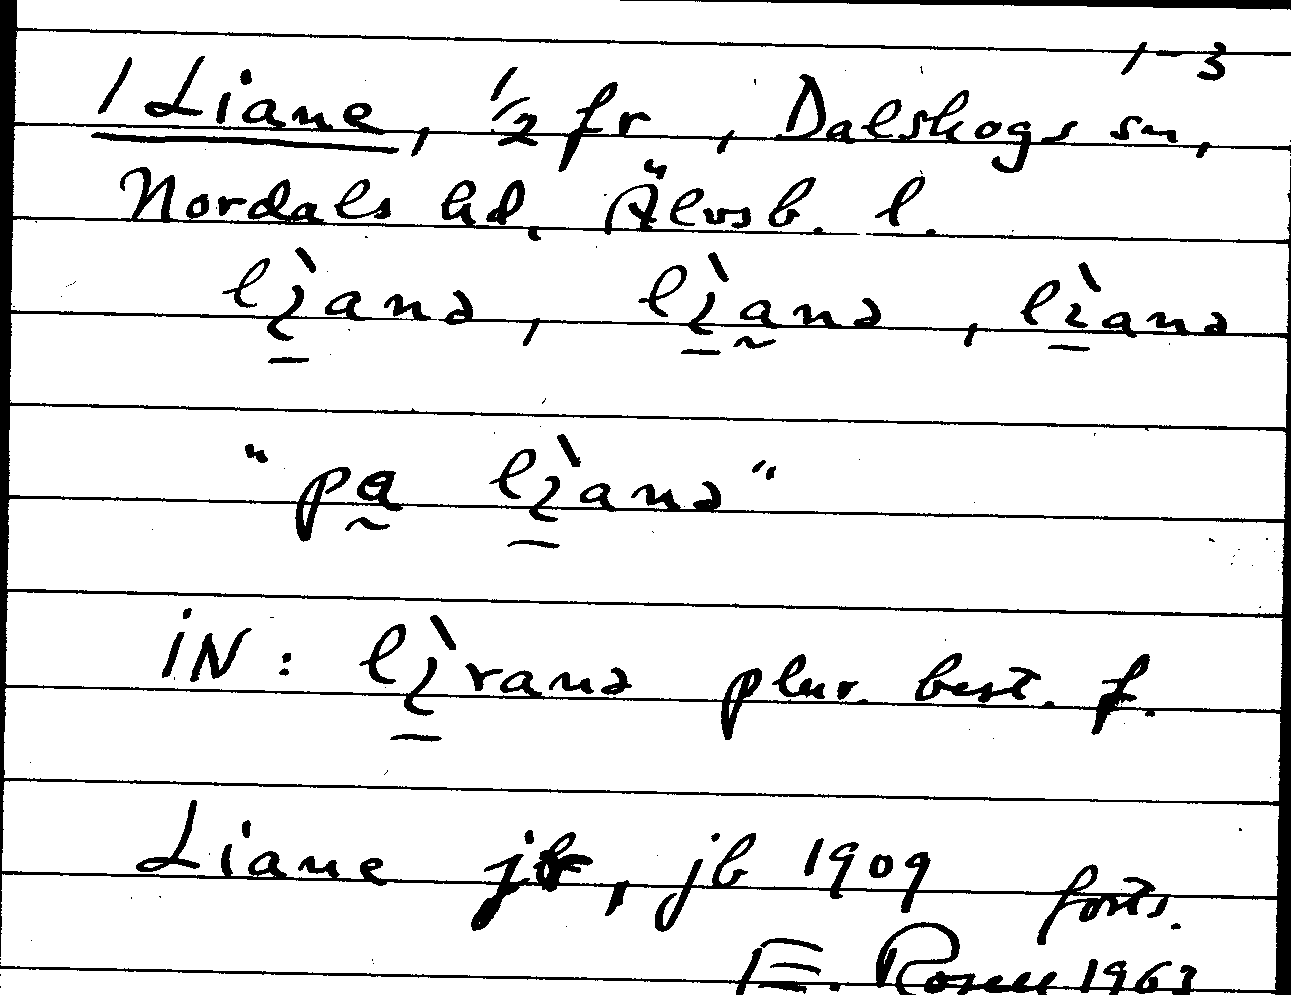 1-3
1 Liane, 1/2 fr, Dalskogs sn,
Nordals hd. Älvsb. l.
lìanə, lìa̰nə, lìanə
"pa̰ lìanə"
iN: lìranə plur. best. f.
Liane jb, jb 1909 forts.
E. Rosell 1963